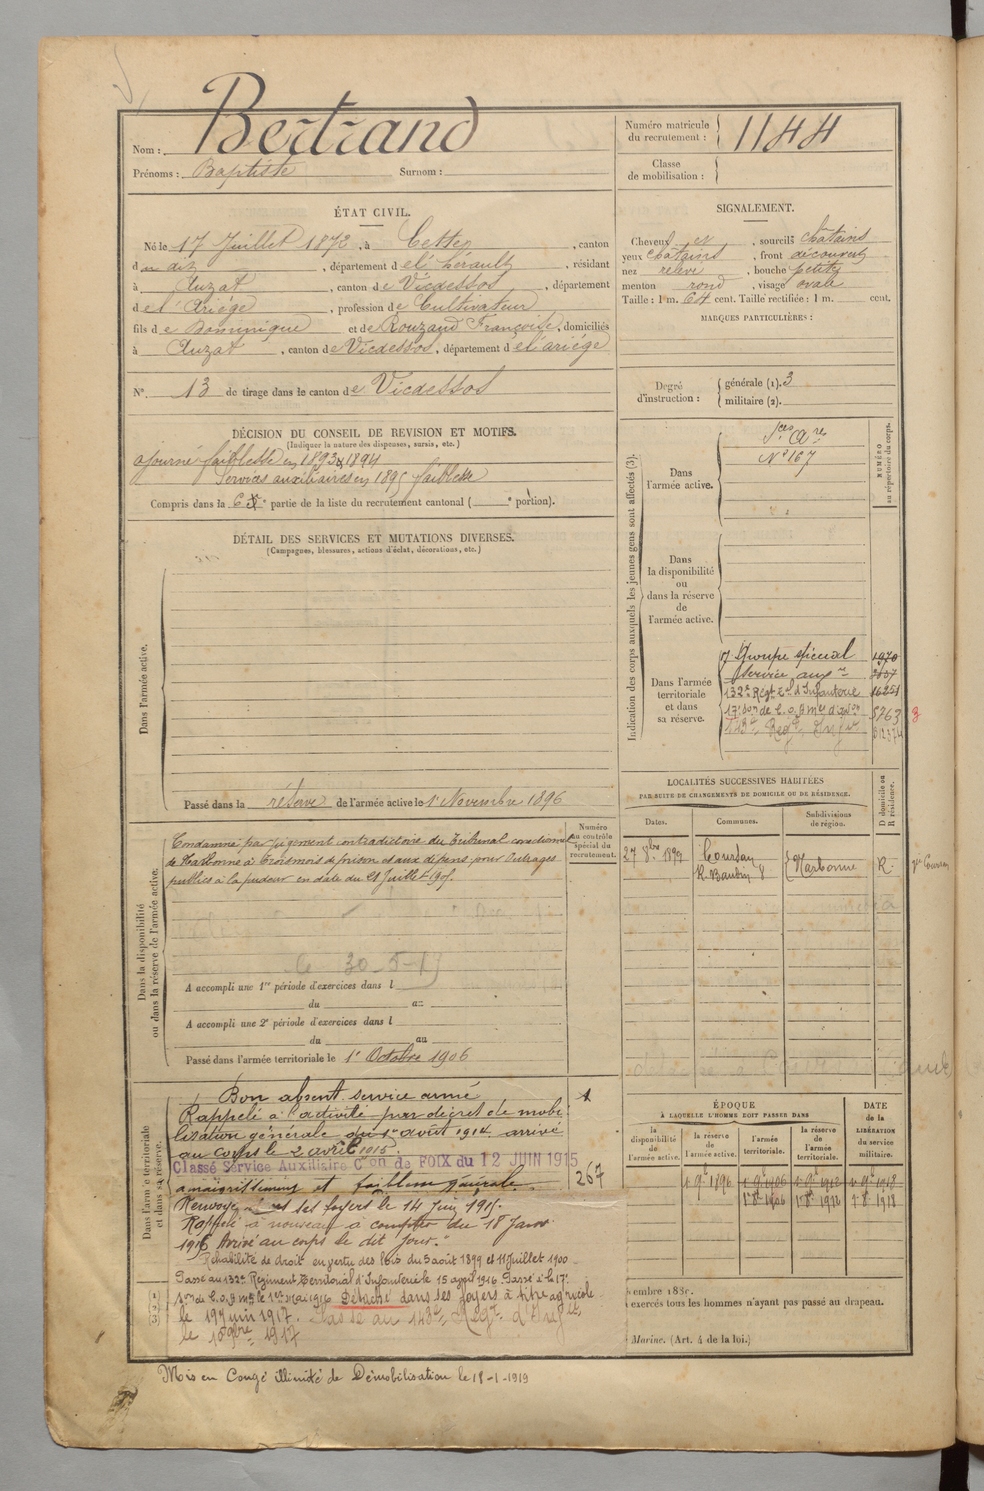 Nom : Bertrand
Prénoms : Baptiste Surnom :
Numéro matricule du recrutement : 1144
Classe de mobilisation :
ÉTAT CIVIL.
Né le 17 Juillet 1872, à Cette, canton
du dit, département de l'hérault, résidant
à Auzat, canton de Vicdessos, département
de l'Ariége, profession de Cultivateur
fils de Dominique et de Rouzaud Françoise, domiciliés
à Auzat, canton de Vicdessos, département de l'ariége
N° 13 de tirage dans le canton de Vicdessos
SIGNALEMENT.
Cheveux et, sourcils chatains
yeux chatains, front découvert
nez relevé, bouche petite
menton rond, visage ovale
Taille : 1 m. 64 cent. Taille rectifiée : 1 m. cent.
MARQUES PARTICULIÈRES :
Degré d'instruction : générale (1). 3
militaire (2).
DÉCISION DU CONSEIL DE REVISION ET MOTIFS.
(Indiquer la nature des dispenses, sursis, etc.)
ajourné faiblesse en 1893 & 1894
Services auxiliaires en 1895 faiblesse
Compris dans la 6e partie de la liste du recrutement cantonal ( e portion).
DÉTAIL DES SERVICES ET MUTATIONS DIVERSES.
(Campagnes, blessures, actions d'éclat, décorations, etc.)
Dans l'armée active.
Passé dans la réserve de l'armée active le 1er Novembre 1896
Indication des corps auxquels les jeunes gens sont affectés (3).
NUMÉRO au répertoire du corps.
Dans l'armée active.
Sces Ares
N° 167
Dans la disponibilité ou dans la réserve de l'armée active.
Dans l'armée territoriale et dans sa réserve.
Groupe spécial 1970
service auxre
132e Régt Eal d'Infanterie 16251
5763 3
LOCALITÉS SUCCESSIVES HABITÉES
PAR SUITE DE CHANGEMENTS DE DOMICILE OU DE RÉSIDENCE.
Dates. Communes. Subdivisions de région. D domicile ou R résidence.
27 8bre 1899 Coursan Narbonne R.
R. Baudin 8
Dans la disponibilité ou dans la réserve de l'armée active.
Numéro au contrôle spécial du recrutement.
Condamné par jugement contradictoire du Tribunal correctionnel
de Narbonne à trois mois de prison et aux dépens pour Outrages
publics à la pudeur en date du 21 Juillet 1905.
le 30-5-17
A accompli une 1re période d'exercices dans l
du au
A accompli une 2e période d'exercices dans l
du au
Passé dans l'armée territoriale le 1er Octobre 1906
Dans l'armée territoriale et dans sa réserve.
Bon absent service armé
Rappelé à l'activité par décret de mobi-
lisation générale du 1er août 1914 arrivé
au corps le 2 avril 1915.
Classé Service Auxiliaire Con de FOIX du 12 JUIN 1915
amaigrissement et faiblesse générale. 267
Renvoyé dans ses foyers le 14 Juin 1915.
Rappelé à nouveau à compter du 18 Janv
1916 Arrivé au corps le dit jour.
Réhabilité de droit en vertu des lois du 5 août 1899 et 11 Juillet 1900
Passé au 132e Régiment Territorial d'Infanterie le 15 avril 1916. Passé à la 17e
son de C.O.A mes le 1er mai 1916 Détaché dans ses foyers à titre agricole
le 19 juin 1917. Passé au 143e Regt d'Infie
le 10 9bre 1917
ÉPOQUE
À LAQUELLE L'HOMME DOIT PASSER DANS
la disponibilité de l'armée active. la réserve de l'armée active. l'armée territoriale. la réserve de l'armée territoriale.
DATE de la LIBÉRATION du service militaire.
1r 9e 1896 1r 9e 1906 1r 9e 1912 1r 9e 1918
1r 8e 1906 1r 8e 1912 1r 8e 1918
(1)
(2)
(3)
embre 1883.
exercés tous les hommes n'ayant pas passé au drapeau.
Marine. (Art. 4 de la loi.)
Mis en Congé illimité de Démobilisation le 18-1-1919